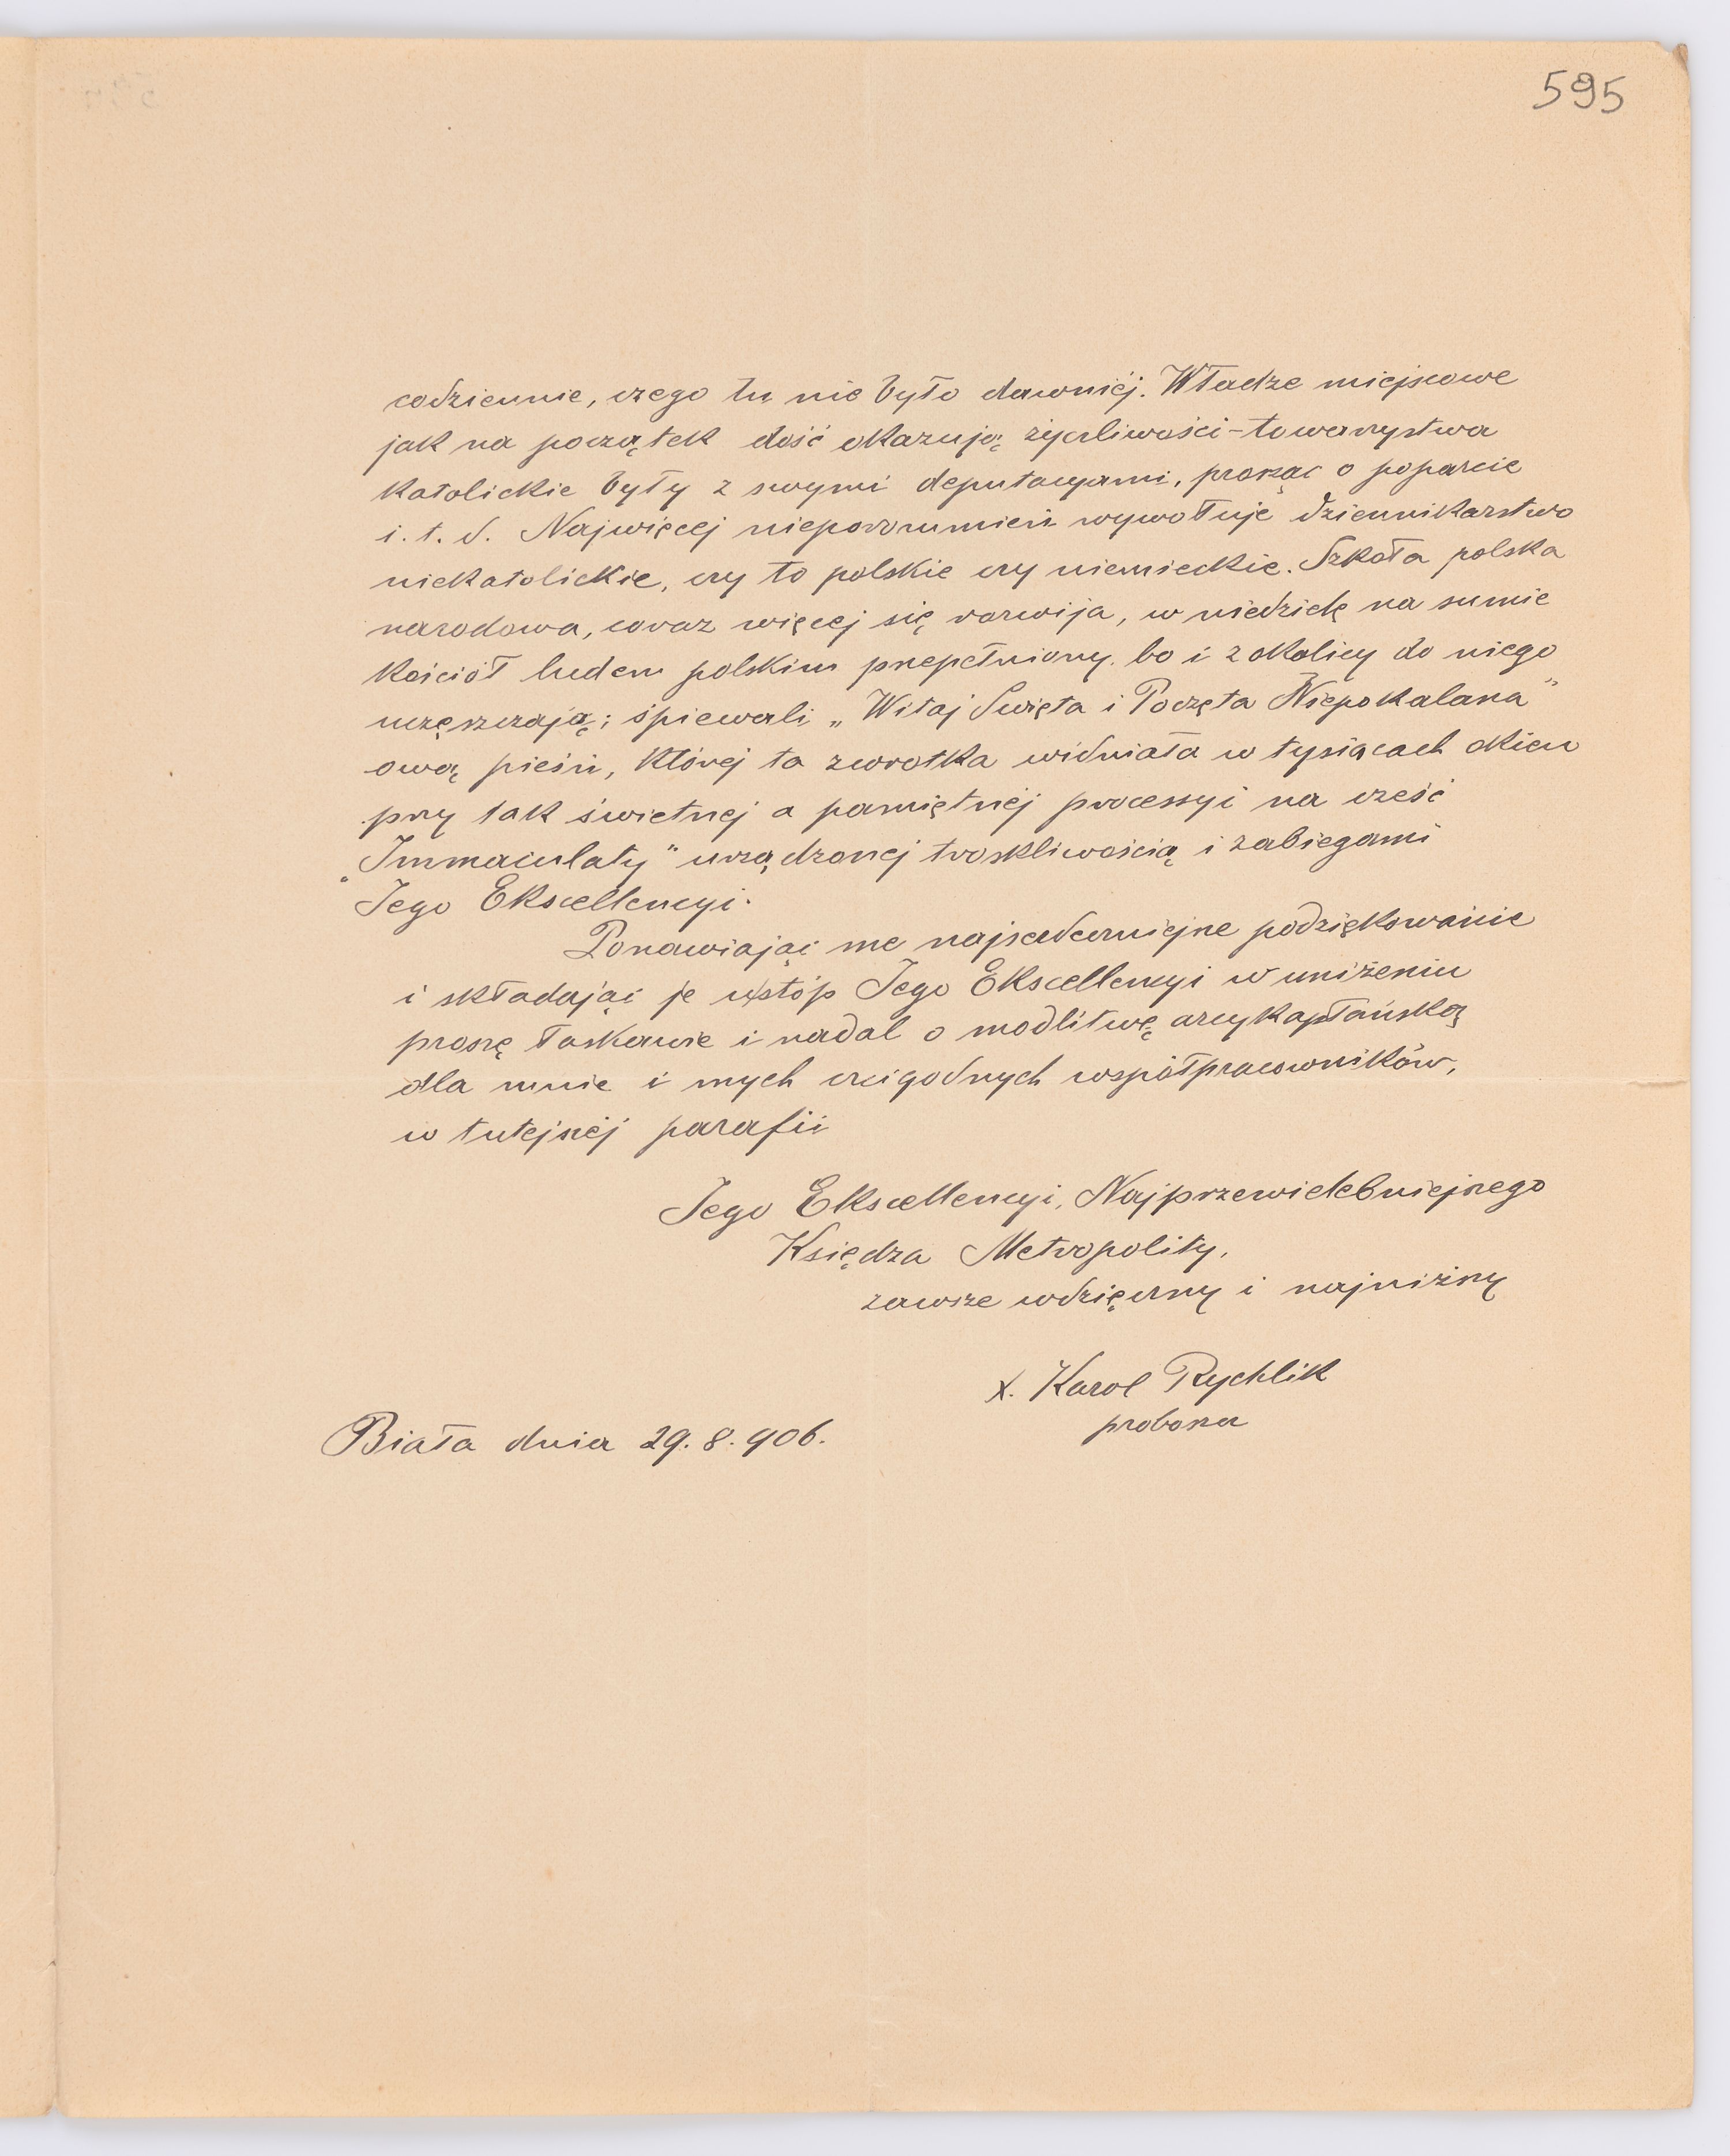 595
codziennie, czego tu nie było dawniéj. Władze miejscowe
jak na początek dość okazują życzliwości – towarzystwa
katolickie były z swymi deputacyami, prosząc o poparcie
i. t. d. Najwięcej nieporozumień wywołuje dziennikarstwo
niekatolickie, czy to polskie czy niemieckie. Szkoła polska
narodowa, coraz więcej się rozwija, w niedzielę na sumie
kościół ludem polskim przepełniony, bo i z okolicy do niego
uczęszczają; śpiewali „Witaj Święta i Poczęta Niepokalana"
ową pieśń, któréj ta zwrotka widniała w tysiącach okien
przy tak świetnej a pamiętnéj processyi na cześć
„Immaculaty" urządzonej troskliwością i zabiegami
Jego Ekscellencyi.
Ponawiając me najserdeczniejsze podziękowanie
i składając je u stóp Jego Ekscellencyi w uniżeniu
proszę łaskawie i nadal o modlitwę arcykapłańską
dla mnie i mych czcigodnych współpracowników,
w tutejszéj parafii
Jego Ekscellencyi, Najprzewielebniejszego
Księdza Metropolity,
zawsze wdzięczny i najniższy
X. Karol Rychlik
proboszcz
Biała dnia 29. 8. 906.